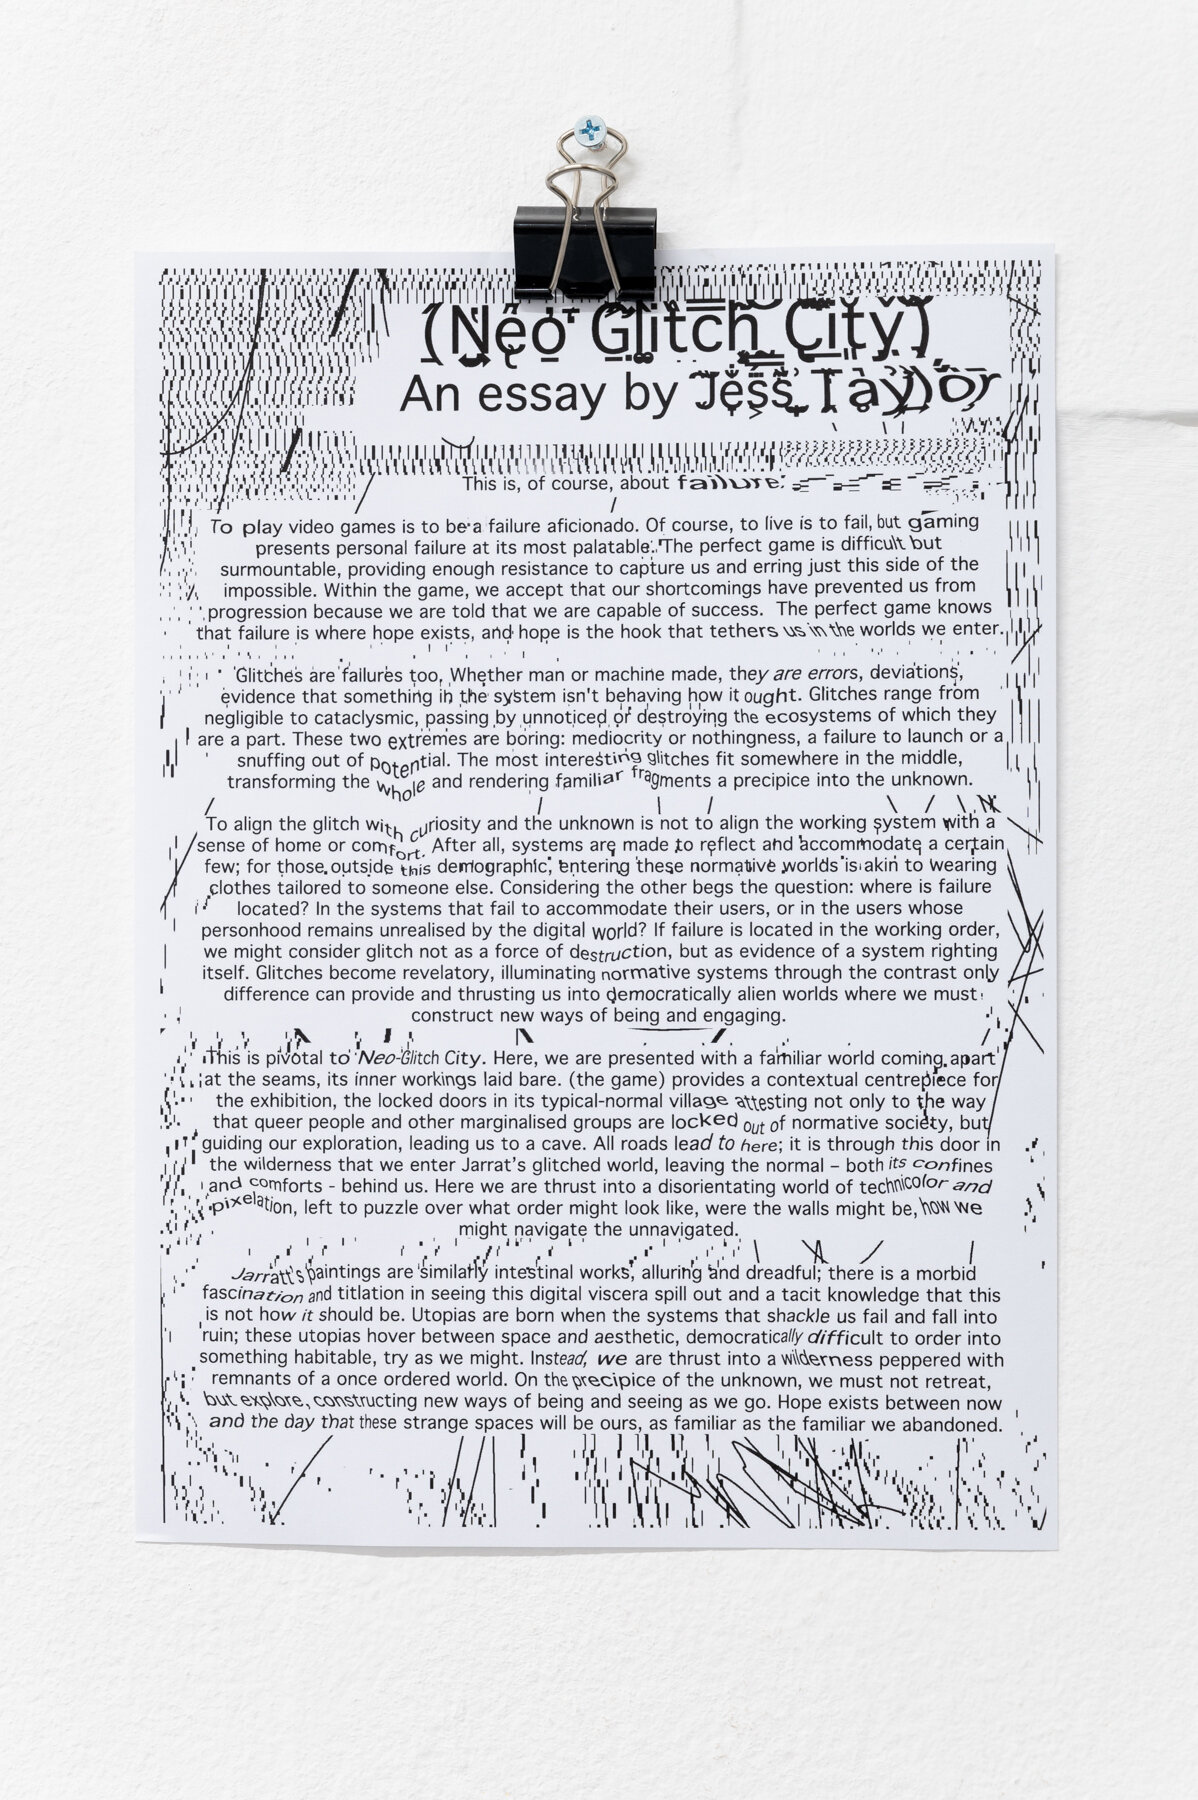 (Neo Glitch City)
An essay by Jess Taylor
This is, of course, about failure.
To play video games is to be a failure aficionado. Of course, to live is to fail, but gaming
presents personal failure at its most palatable. The perfect game is difficult but
surmountable, providing enough resistance to capture us and erring just this side of the
impossible. Within the game, we accept that our shortcomings have prevented us from
progression because we are told that we are capable of success. The perfect game knows
that failure is where hope exists, and hope is the hook that tethers us in the worlds we enter.
Glitches are failures too. Whether man or machine made, they are errors, deviations,
evidence that something in the system isn't behaving how it ought. Glitches range from
negligible to cataclysmic, passing by unnoticed or destroying the ecosystems of which they
are a part. These two extremes are boring: mediocrity or nothingness, a failure to launch or a
snuffing out of potential. The most interesting glitches fit somewhere in the middle,
transforming the whole and rendering familiar fragments a precipice into the unknown.
To align the glitch with curiosity and the unknown is not to align the working system with a
sense of home or comfort. After all, systems are made to reflect and accommodate a certain
few; for those outside this demographic, entering these normative worlds is akin to wearing
clothes tailored to someone else. Considering the other begs the question: where is failure
located? In the systems that fail to accommodate their users, or in the users whose
personhood remains unrealised by the digital world? If failure is located in the working order,
we might consider glitch not as a force of destruction, but as evidence of a system righting
itself. Glitches become revelatory, illuminating normative systems through the contrast only
difference can provide and thrusting us into democratically alien worlds where we must
construct new ways of being and engaging.
This is pivotal to Neo-Glitch City. Here, we are presented with a familiar world coming apart
at the seams, its inner workings laid bare. (the game) provides a contextual centrepiece for
the exhibition, the locked doors in its typical-normal village attesting not only to the way
that queer people and other marginalised groups are locked out of normative society, but
guiding our exploration, leading us to a cave. All roads lead to here; it is through this door in
the wilderness that we enter Jarrat's glitched world, leaving the normal – both its confines
and comforts - behind us. Here we are thrust into a disorientating world of technicolor and
pixelation, left to puzzle over what order might look like, were the walls might be, how we
might navigate the unnavigated.
Jarratt's paintings are similarly intestinal works, alluring and dreadful; there is a morbid
fascination and titlation in seeing this digital viscera spill out and a tacit knowledge that this
is not how it should be. Utopias are born when the systems that shackle us fail and fall into
ruin; these utopias hover between space and aesthetic, democratically difficult to order into
something habitable, try as we might. Instead, we are thrust into a wilderness peppered with
remnants of a once ordered world. On the precipice of the unknown, we must not retreat,
but explore, constructing new ways of being and seeing as we go. Hope exists between now
and the day that these strange spaces will be ours, as familiar as the familiar we abandoned.